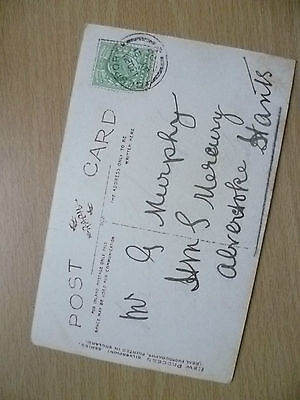 POST CARD
FOR INLAND POSTAGE ONLY THIS
SPACE MAY BE USED FOR COMMUNICATION
THE ADDRESS ONLY TO BE
WRITTEN HERE
Mr G Murphy
HMS Mercury
Alverstoke Hants
(REAL PHOTOGRAPH). PRINTED IN ENGLAND.